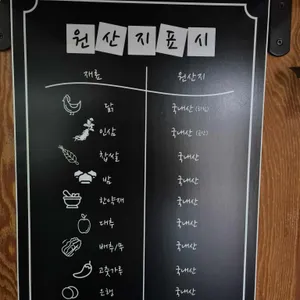 원산지표시
재료 원산지
닭 국내산
인삼 국내산
찹쌀 국내산
밤 국내산
한약재 국내산
대추 국내산
배추/무 국내산
고춧가루 국내산
은행 국내산